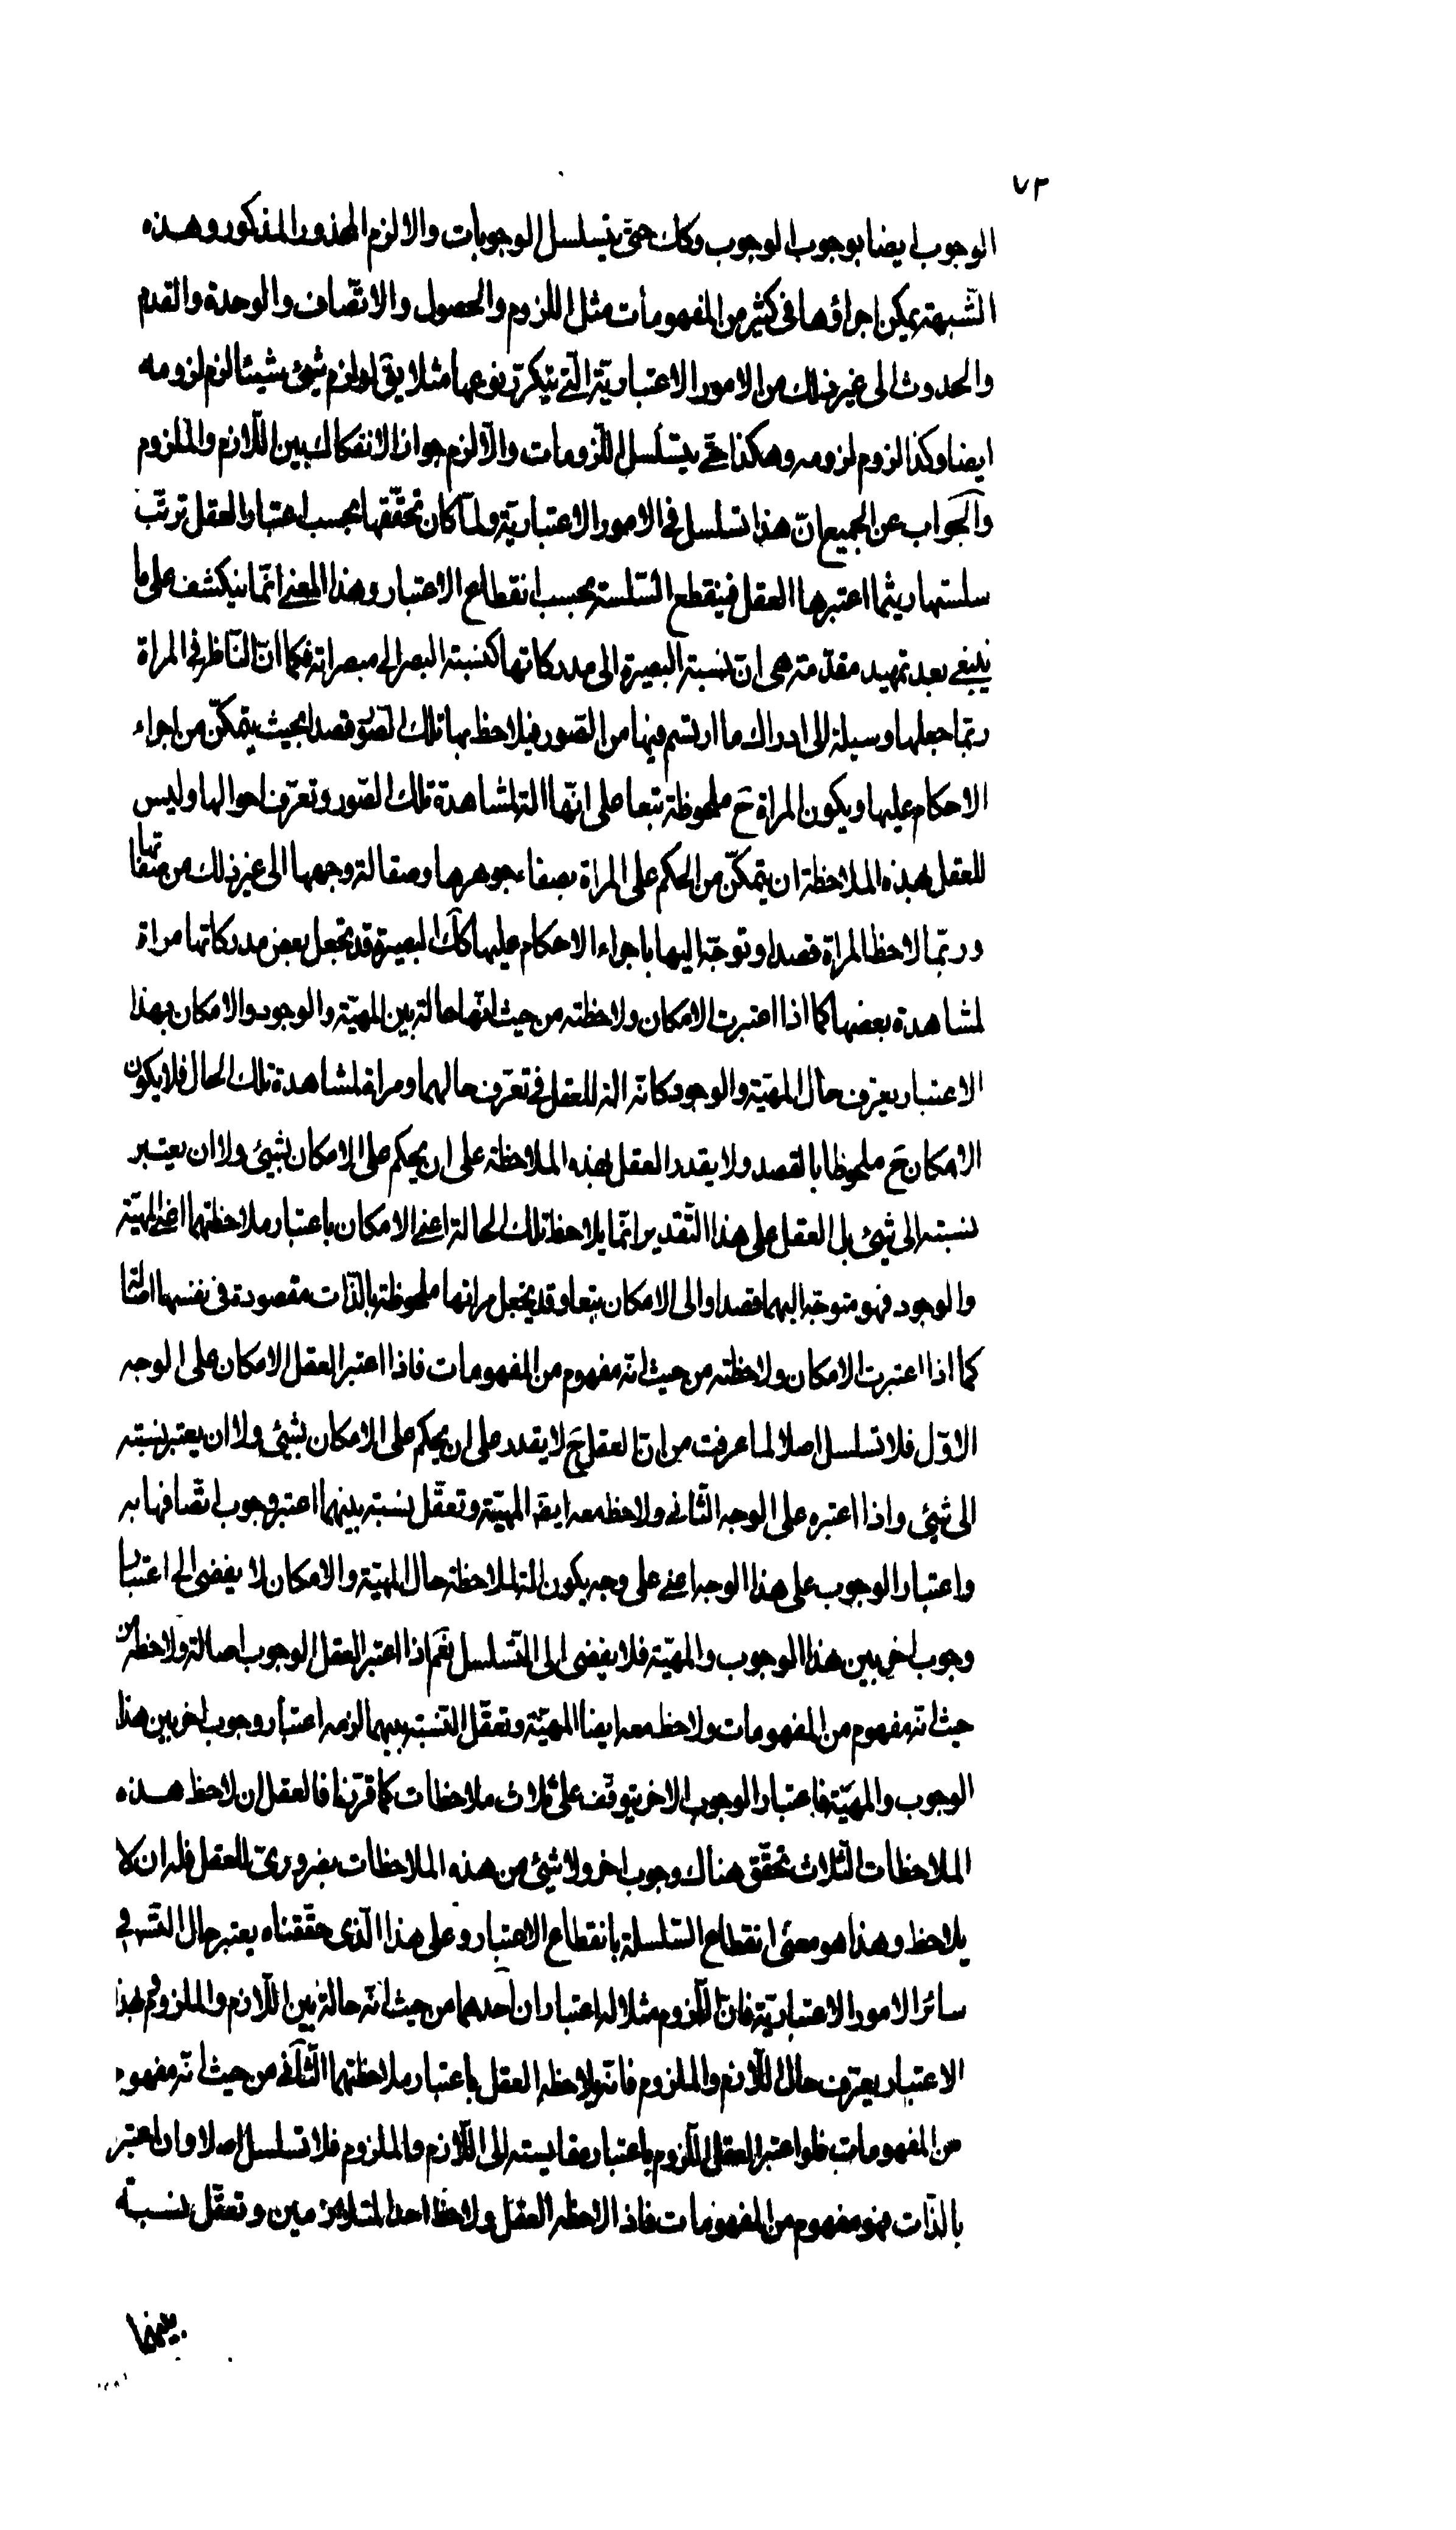 ٧٢
الوجوب ايضا بوجوب الوجوب وكك حتى يتسلسل الوجوبات والا لزم المحذور المذكور وهذه
الشّبهة يمكن اجراؤها فى كثير من المفهومات مثل اللزوم والحصول والاتّصاف والوحدة والقدم
والحدوث الى غير ذلك من الامور الاعتباريّة الّتى يتكرّر نوعها مثلا يق لو لزم شيئ شيئا لزم لزومه
ايضا وكذا لزوم لزومه وهكذا حتّى يتسلسل اللّزومات والّا لزم جواز الانفكاك بين اللّازم والملزوم
والجواب عن الجميع انّ هذا تسلسل فى الامور الاعتباريّة ولمّا كان تحقّقها بحسب اعتبار العقل ترتّب
سلسلتها ريثما اعتبرها العقل فينقطع السّلسلة بحسب انقطاع الاعتبار وهذا المعنى انّما ينكشف على ما
ينبغى بعد تمهيد مقدّمة هى انّ نسبة البصيرة الى مدركاتها كنسبة البصر الى مبصراته فكما انّ النّاظر فى المراة
ربّما جعلها وسيلة الى ادراك ما ارتسم فيها من الصّور فيلاحظ بها تلك الصّور قصدا بحيث يتمكّن من اجراء
الاحكام عليها ويكون المراة ح ملحوظة تبعا على انّها الة لمشاهدة تلك الصّور وتعرّف احوالها وليس
للعقل بهذه الملاحظة ان يتمكّن من الحكم على المراة بصفاء جوهرها وصقالة وجهها الى غير ذلك من صفاتها
وربّما لاحظ المراة قصدا وتوجّه اليها باجراء الاحكام عليها كك البصيرة قد تجعل بعض مدركاتها مراة
لمشاهدة بعضها كما اذا اعتبرت الامكان ولاحظته من حيث انّها حالة بين المهيّة والوجود والامكان بهذا
الاعتبار يعرّف حال المهيّة والوجود كانّه الة للعقل فى تعرّف حالهما ومراة لمشاهدة تلك الحال فلا يكون
الامكان ح ملحوظا بالقصد ولا يقدر العقل بهذه الملاحظة على ان يحكم على الامكان بشيئ ولا ان يعتبر
نسبته الى شيئ بل العقل على هذا التّقدير انّما يلاحظ تلك الحالة اعنى الامكان باعتبار ملاحظتهما اعنى المهيّة
والوجود فهو متوجّه اليهما قصدا والى الامكان تبعا وقد يجعل مراتها ملحوظة بالذّات مقصودة فى نفسها اصالة
كما اذا اعتبرت الامكان ولاحظته من حيث انّه مفهوم من المفهومات فاذا اعتبر العقل الامكان على الوجه
الاوّل فلا تسلسل اصلا لما عرفت من انّ العقل ح لا يقدر على ان يحكم على الامكان بشيئ ولا ان يعتبر نسبته
الى شيئ واذا اعتبره على الوجه الثّانى ولاحظ معه ايضا المهيّة وتعقّل نسبته بينهما اعتبر وجوب اتّصافها به
واعتبار الوجوب على هذا الوجه اعنى على وجه يكون الة لملاحظة حال المهيّة والامكان لا يفضى الى اعتبار
وجوب اخر بين هذا الوجوب والمهيّة فلا يفضى الى التّسلسل نعم اذا اعتبر العقل الوجوب اصالة ولاحظه من
حيث انّه مفهوم من المفهومات ولاحظ معه ايضا المهيّة وتعقّل النّسبة بينهما لزمه اعتبار وجوب اخر بين هذا
الوجوب والمهيّة فاعتبار الوجوب الاخر يتوقّف على ثلاث ملاحظات كما قرّرنا فالعقل ان لاحظ هذه
الملاحظات الثّلاث تحقّق هناك وجوب اخر ولا شيئ من هذه الملاحظات بضرورىّ للعقل فله ان لا
يلاحظ وهذا هو معنى انقطاع السّلسلة بانقطاع الاعتبار وعلى هذا الّذى حقّقناه يعتبر حال التّسـ فى
سائر الامور الاعتباريّة فانّ اللّزوم مثلا له اعتباران احدهما من حيث انّه حالة بين اللّازم والملزوم بهذا
الاعتبار يعرّف حال اللّازم والملزوم فانّه يلاحظه العقل باعتبار ملاحظتهما الثّانى من حيث انّه مفهوم
من المفهومات فلو اعتبر العقل اللّزوم باعتبار مقايسته الى اللّازم والملزوم فلا تسلسل اصلا وان اعتبر
بالذّات فهو مفهوم من المفهومات فاذا لاحظه العقل ولاحظ احد المتلازمين وتعقّل نسبة
بينهما